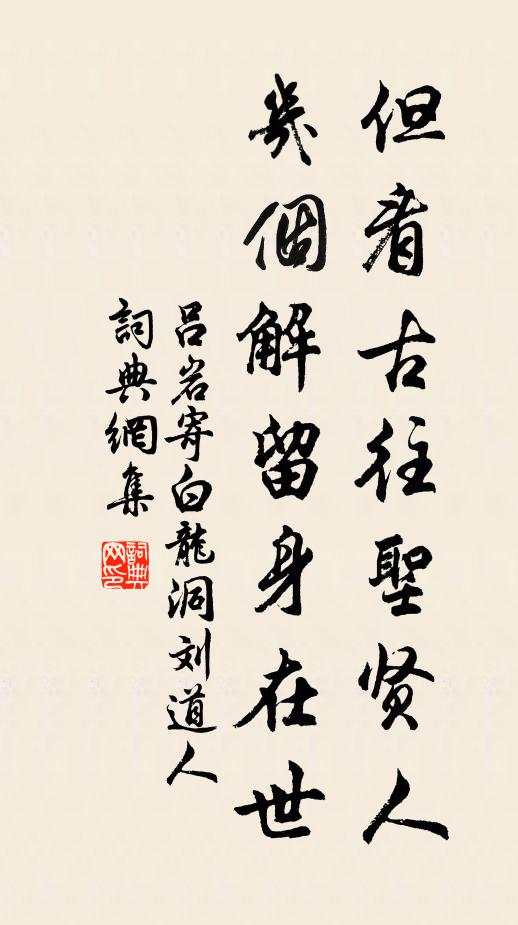 但看古往聖贤人
幾個解留身在世
吕岩寄白龍洞刘道人
詞典網集
詞典网印